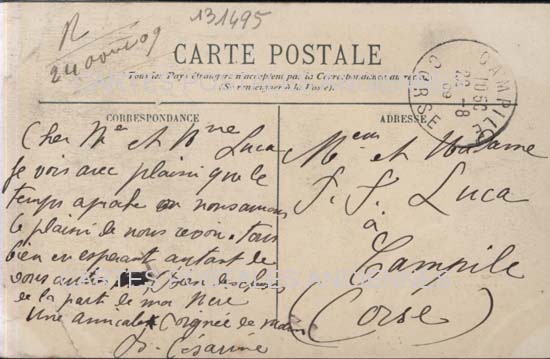 131495
R
24 août 09
CARTE POSTALE
Tous les Pays étrangers n'acceptent pas la Correspondance au recto
(Se renseigner à la Poste).
CORRESPONDANCE
ADRESSE
CAMPILE
10 50
22 -8
09
CORSE
Cher Mr et Mme Luca
Je vois avec plaisir que le
temps
le plaisir de nous revoir. tous
bien en esperant autant de
vous
de la part de ma
Une amicale Poignée de main
Mieur et Madame
F. F. Luca
à
Campile
(Corse)